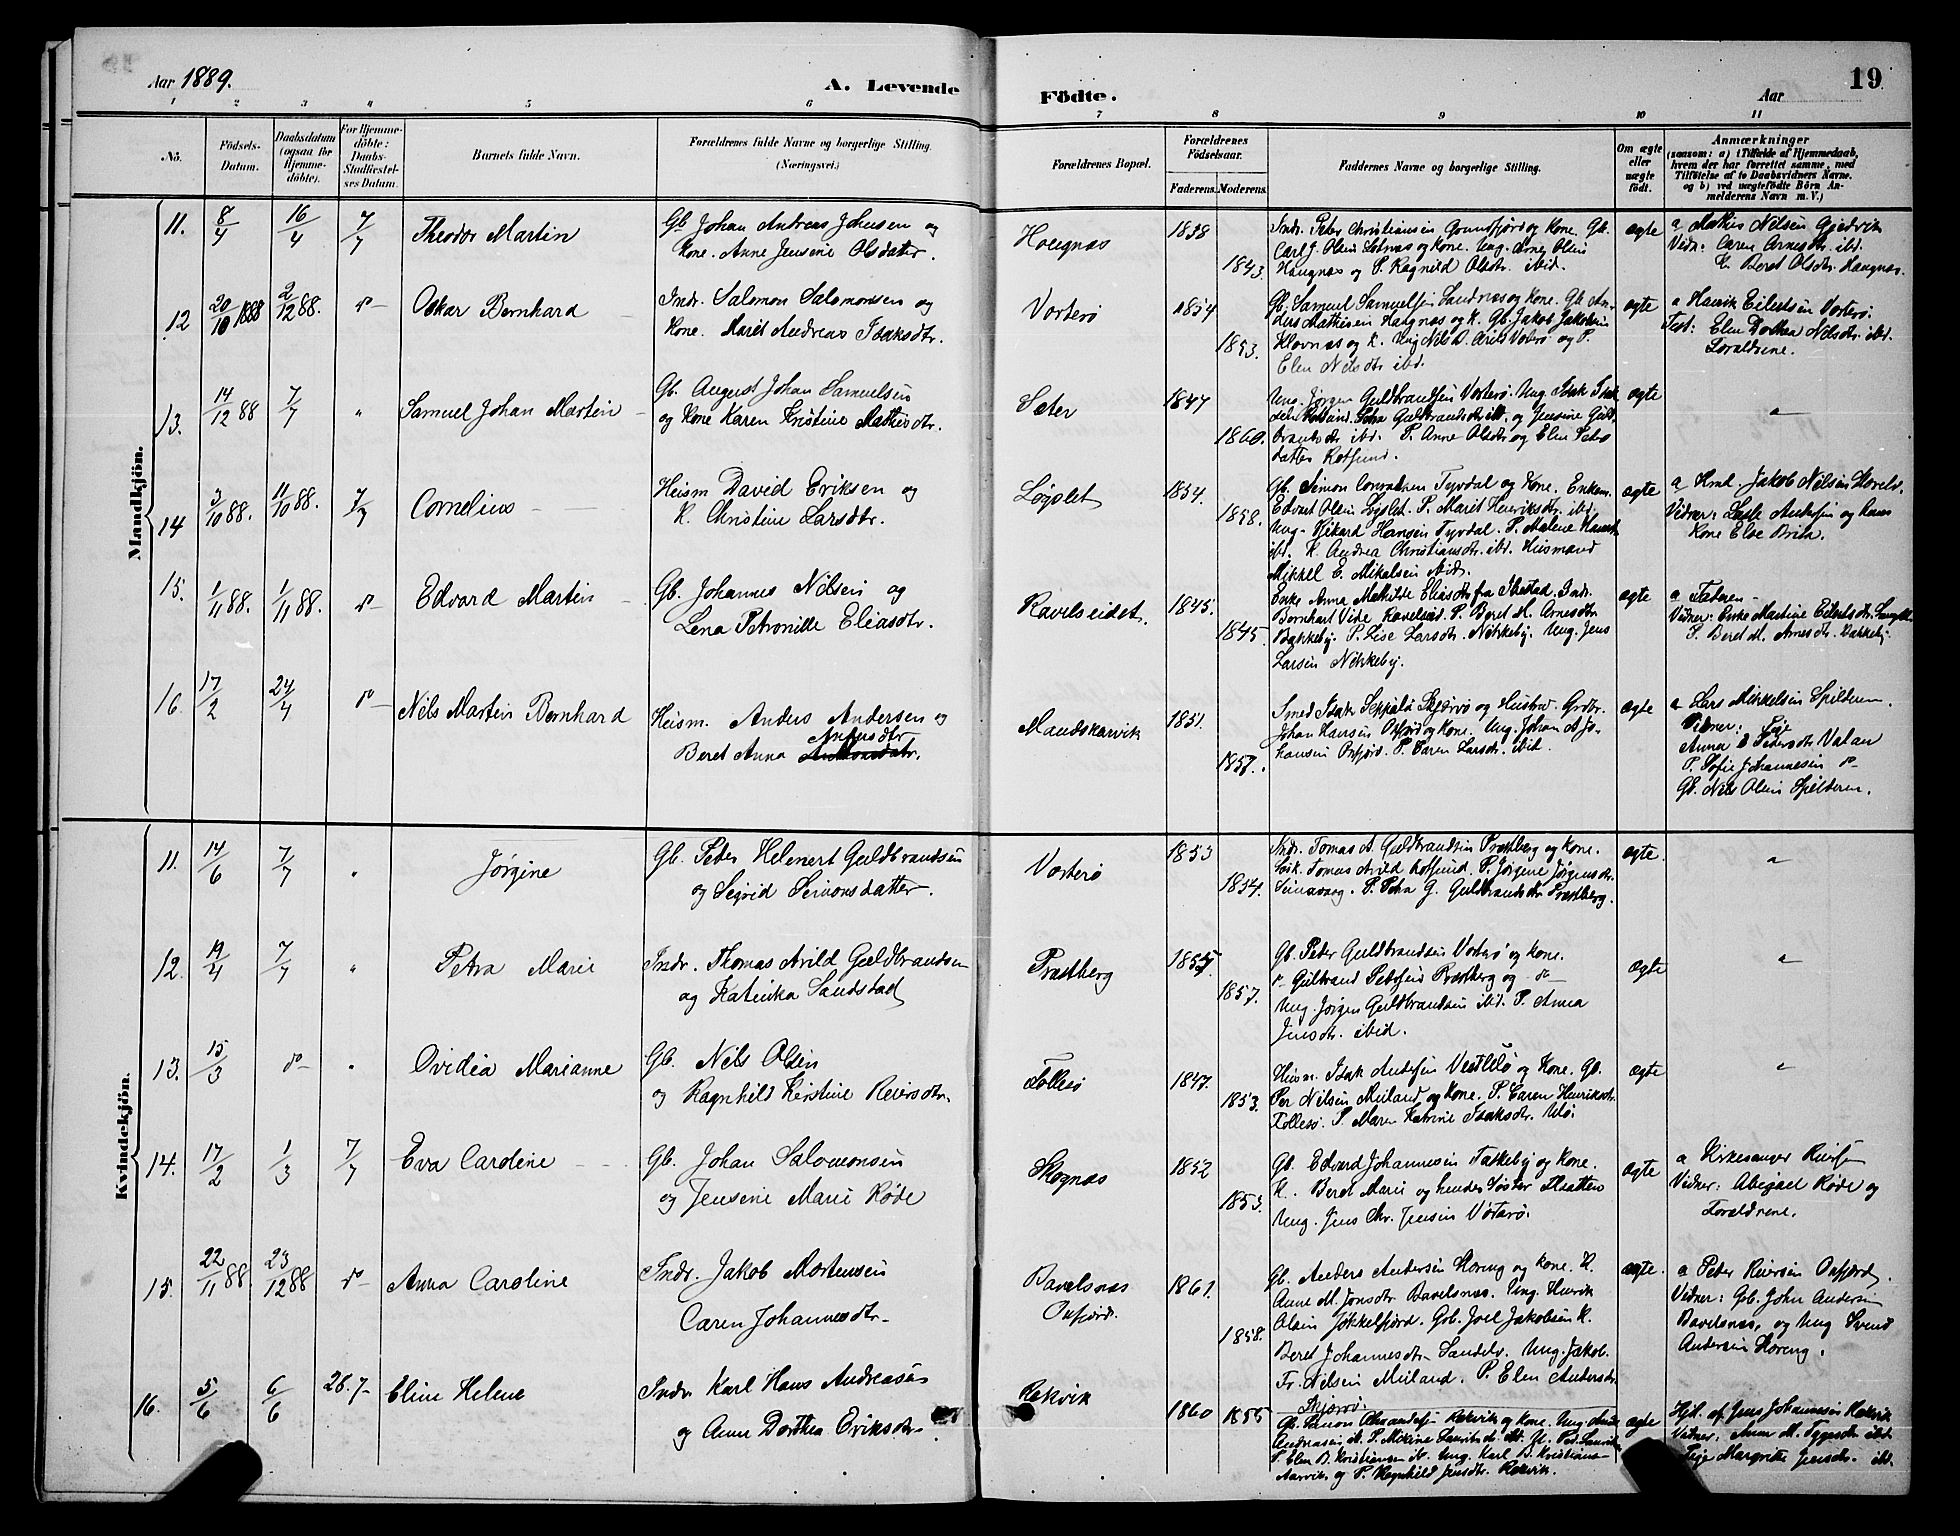 Aar 1889.
A. Levende Födte.
Aar
19
1 2 3 4 5 6 7 8 9 10 11
No.
Födsels-Datum.
Daabsdatum (ogsaa for Hjemme-döbte).
For Hjemme-döbte: Daabs-Stadfæstel-ses Datum.
Barnets fulde Navn.
Forældrenes fulde Navne og borgerlige Stilling. (Næringsvei.)
Forældrenes Bopæl.
Forældrenes Födselsaar.
Faderens. Moderens.
Faddernes Navne og borgerlige Stilling.
Om ægte eller uægte födt.
Anmærkninger
(saasom: a) i Tilfælde af Hjemmedaab,
hvem der har forrettet samme, med
Tilföielse af to Daabsvidners Navne.
og b) ved uægtefödte Börn An-
melderens Navn m. V.)
Mandkjön.
11. 8/4 16/4 7/7 Theodor Martin
Gb. Johan Andreas Johnsen og
Kone. Anne Jensine Olsdater.
Hougnæs 1838 1843.
Indr. Peter Christiansen Grundfjord og Kone. Gb.
Carl J. Olsen Lotnæs og Kone. Ung. Arne Olsen
Haugnæs og P. Ragnild Olsdtr. ibid.
ægte
a Mathis Nilsen Gjedvik
Vidn: Caren Arnesdtr. ibd.
K. Beret Olsdtr. Haugnæs.
12 20/10 1888 2/12 88. do Oskar Bernhard
Indr. Salomon Salomonsen og
Kone. Marit Andreas Isaksdtr.
Vorterö 1854 1853.
Gb. Samuel Samuelsen Sandnæs og Kone. Gb. An-
ders Mathisen Haugnæs og K. Gb. Jakob Jakobsen
Klovnæs og K. Ung Nils D. Arild Vorterö og P.
Elen Nilsdtr ibd.
ægte
a Henrik Eilertsen Vorterö.
Test: Elen Dorthea Nilsdtr. ibd.
Forældrene.
13. 14/12 88 7/7 " Samuel Johan Martin
Gb. August Johan Samuelsen
og Kone Karen Kristine Mathisdtr.
Sæter 1847 1860.
Ung. Jörgen Guldbrandsen Vorterö. Ung. Isak Isak-
sen Rotsund. Petra Guldbrandsdtr ibd. og Jensine Guld-
brandsdtr ibd. P. Anne Olsdtr og Elen Peders
datter Rotsund.
ægte
"
14 3/10 88. 11/10 88. 7/7 Cornelius
Heism David Eriksen og
K. Christine Larsdtr.
Lögslet 1854. 1858.
Gb. Simon Conradsen Tyrdal og Kone. Enkem.
Edvart Olsen Lögslet. P. Marit Henriksdtr. ibd.
Ung. Rikard Hansen Tyrdal. P. Malene Hansdtr
ibd. K. Andrea Christiansdtr. ibd. Huismand
Mikkel E. Mikalsen ibidr.
ægte
a Hmd. Jakob Nilsen Hovels.
Vidner: Lasse Andersen og hans
Kone Else Brita.
15. 1/11 88. 1/11 88. do Edvard Martin
Gb. Johannes Nilsen og
Lena Petronille Eliasdtr.
Ravelseidet. 1845. 1845.
Enke Anna Mathilde Eliasdtr fra Ibestad. Indr.
Bernhart Vide Ravelseid. P. Beret M. Arnesdtr
Bakkeby. P. Lise Larsdtr. Nikkeby. Ung. Jens
Larsen Nikkeby.
ægte
a Faderen
Vidner: Enke Martine Eilertsdtr.
P. Beret M. Arnesdtr. Bakkeby
16. 17/2 24/4 do Nils Martin Bernhard
Heism. Anders Andersen og
Beret Anna Antonsdatr. Antusdtr
Maudskarvik 1851. 1857.
Smed Isak Seppälä Skjærvö og Hustru. Grdbr.
Johan Hansen Oxfjord og Kone. Ung. Johan A. Jo-
hansen Oxfjord. P. Caren Larsdtr. ibid.
ægte
a Lars Mikkelsen Spildern.
Vidner: Pige
Anna E Pedersdtr Vatan
P. Sofie Johannesen do
Gb. Nils Olsen Spilderen.
Kvindekjön.
11. 14/6 7/7 " Jörgine
Gb. Peder Helenert Guldbrandsen
og Sigrid Simonsdatter.
Vorterö 1853 1854.
Indr. Tomas A. Guldbrandsen Præstberg og Kone.
Tomas Arild Rotsund. P. Jörgine Jörgensdtr.
P. Petra G. Guldbrandsdtr Præstberg.
ægte.
"
12. 19/4 7/7 " Petra Marie
Indr. Thomas Arild Guldbrandsen
og Katinka Sandstad
Præstberg 1855 1857.
Gb. Peder Guldbrandsen Vorterö og Kone.
do Gulbrand Pedersen Præstberg og do
Ung. Jörgen Guldbrandsen ibd. P. Anna
Jensdtr. ibid.
ægte
"
13. 15/3 do " Ovidia Marianne
Gb. Nils Olsen
og Ragnhild Kirstine Reiersdtr.
Follesö 1847. 1853.
Huism. Isak Andersen Vestlelö og Kone. Gb.
Per Nilsen Meiland og Kone. P. Caren Henriksdtr
Follesö. P. Maren Katrine Isaksdtr. Ulö.
ægte
"
14. 17/2 1/3 7/7 Eva Caroline
Gb. Johan Salomonsen
og Jensine Marie Röde
Skognæs 1852 1853.
Gb. Edvard Johannesen Takkeby og Kone.
K. Beret Marie og hendes Söster
Ung. Jens Chr. Jensen Vorterö.
ægte
a Kirkesanger Reiersen
Vidner: Abigael Röde og
Forældrene.
15. 22/11 88. 23/12 88 do Anna Caroline
Indr. Jakob Mortensen
Caren Johannesdtr
Bavelsnæs
Oxfjord. 1861. 1858.
Gb. Anders Andersen Storeng og Kone. K.
Anne M. Jonsdtr. Bavelsnæs. Ung. Henrik
Olsen Jökkelfjord. Gb. Joel Jakobsen K.
Beret Johannesdtr Sandelv. Ung. Jakob
Fr. Nilsen Meiland. P. Elen Andersdtr
Skjærvö.
ægte.
a Peter Reiersen Oxfjord.
Vidner: Gb. John Andersen
Bavelsnæs, og Ung Svend
Andersen Storeng.
16. 5/6 6/6 28.7 Eline Helene
Indr. Karl Hans Andreasen
og Anne Dorthea Eriksdtr
Rekvik 1860 1855
Gb. Simon Alexandersen Rekvik og Kone. Ung.
Andreasen ibd. P. Mikine Lauritsdtr
P. Elen B. Kristiansen ibd. Ung. Karl B. Kristiansen
Aarvik og P. Ragnhild Jensdtr. Rekvik.
ægte
Hjd. af Jens Johannesen Rekvik
Vidner. Anne M. ibd
Pige Margrethe Jensdtr. ibd.